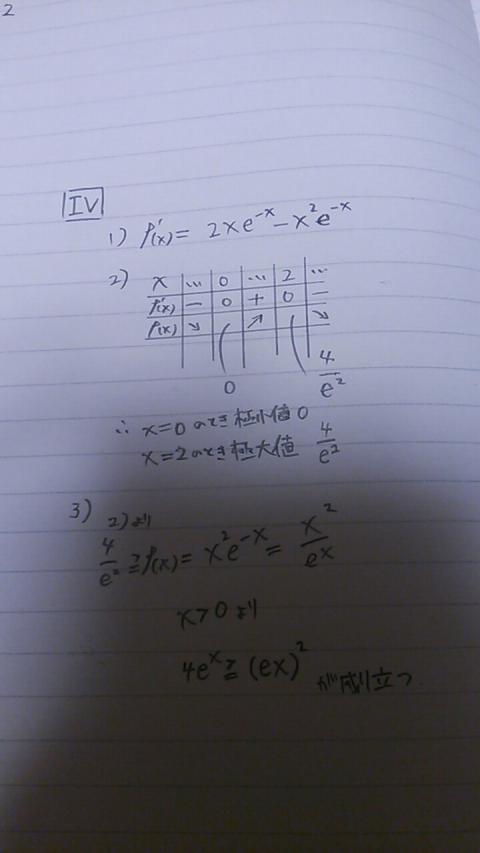 2
IV
1) f'(x) = 2xe^{-x} - x^2e^{-x}
2) x | … | 0 | … | 2 | …
f'(x) | - | 0 | + | 0 | -
f(x) | ↘ | | ↗ | | ↘
0 4/e^2
∴ x=0のとき極小値0
x=2のとき極大値 4/e^2
3) 2)より
4/e^2 ≧ f(x) = x^2e^{-x} = x^2/e^x
x>0より
4e^x ≧ (ex)^2 が成り立つ